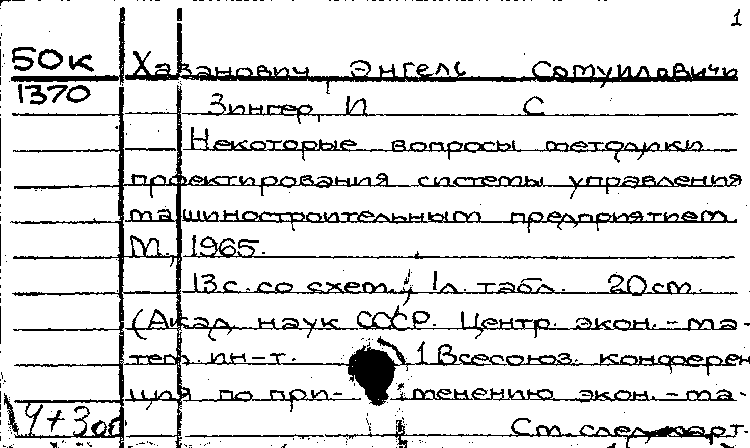 1
50к Хазанович Энгель Самуилович
1370 Зингер, И С
Некоторые вопросы методики
проектирования системы управления
машиностроительным предприятием
М., 1965.
13 с. со схем., 1 л. табл. 20 см.
(Акад. наук СССР. Центр. экон.-ма-
тем. ин-т. 1 Всесоюз. конферен
ция по при- менению экон.-ма-
См. след. карт.